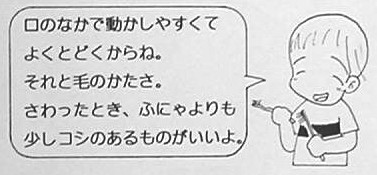 口のなかで動かしやすくて
よくとどくからね。
それと毛のかたさ。
さわったとき、ふにゃよりも
少しコシのあるものがいいよ。